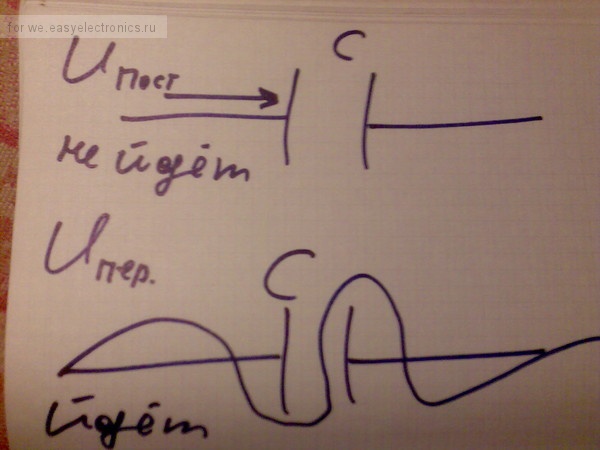 for we.easyelectronics.ru
C
Uпост
не йдёт
Uпер.
C
йдёт